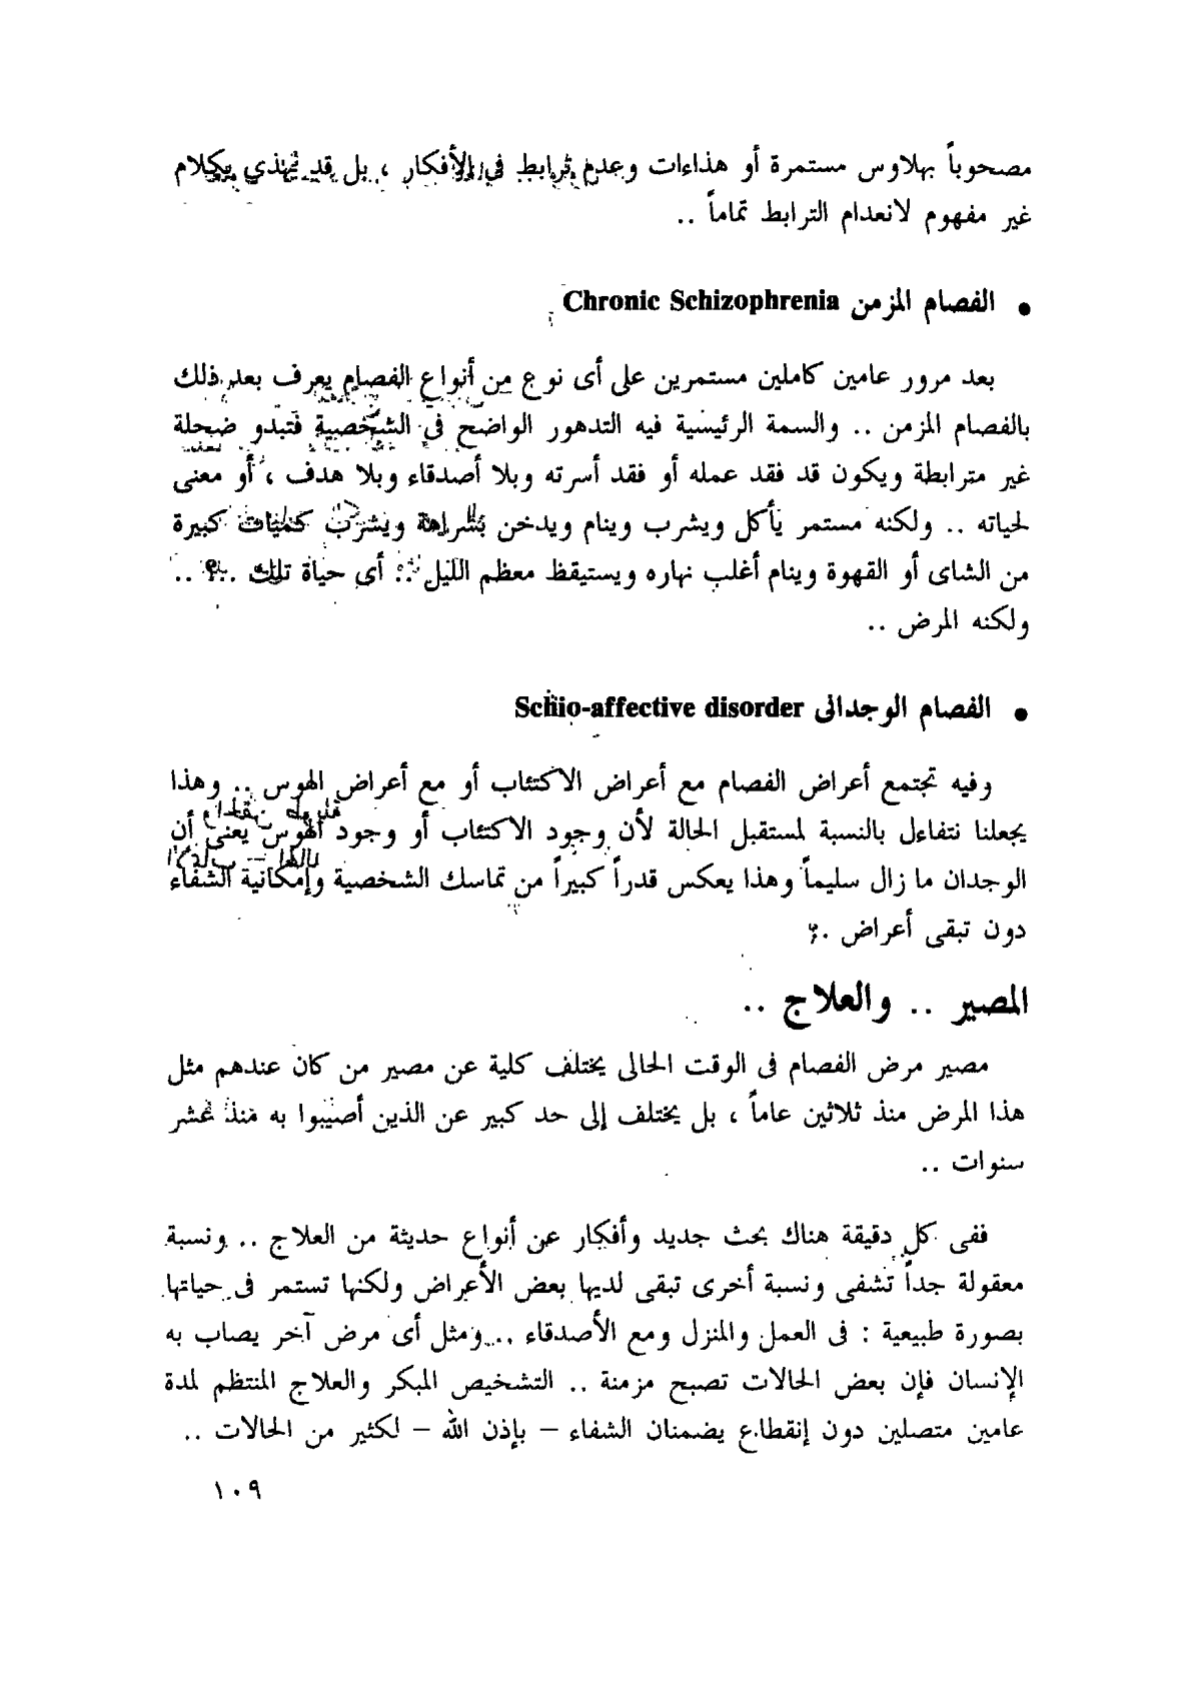 مصحوباً بهلاوس مستمرة أو هذاءات وعدم ترابط في الأفكار ، بل قد يهذي بكلام
غير مفهوم لانعدام الترابط تماماً ..
• الفصام المزمن Chronic Schizophrenia
بعد مرور عامين كاملين مستمرين على أى نوع من أنواع الفصام يعرف بعد ذلك
بالفصام المزمن .. والسمة الرئيسية فيه التدهور الواضح في الشخصية فتبدو ضحلة
غير مترابطة ويكون قد فقد عمله أو فقد أسرته وبلا أصدقاء وبلا هدف ، أو معنى
لحياته .. ولكنه مستمر يأكل ويشرب وينام ويدخن بشراهة ويشرب كميات كبيرة
من الشاى أو القهوة وينام أغلب نهاره ويستيقظ معظم الليل .. أى حياة تلك ..؟ ..
ولكنه المرض ..
• الفصام الوجدانى Schio-affective disorder
وفيه تجتمع أعراض الفصام مع أعراض الاكتئاب أو مع أعراض الهوس .. وهذا
يجعلنا نتفاءل بالنسبة لمستقبل الحالة لأن وجود الاكتئاب أو وجود الهوس يعنى أن
الوجدان ما زال سليماً وهذا يعكس قدراً كبيراً من تماسك الشخصية وإمكانية الشفاء
دون تبقى أعراض ..
المصير .. والعلاج ..
مصير مرض الفصام فى الوقت الحالى يختلف كلية عن مصير من كان عندهم مثل
هذا المرض منذ ثلاثين عاماً ، بل يختلف إلى حد كبير عن الذين أصيبوا به منذ عشر
سنوات ..
ففى كل دقيقة هناك بحث جديد وأفكار عن أنواع حديثة من العلاج .. ونسبة
معقولة جداً تشفى ونسبة أخرى تبقى لديها بعض الأعراض ولكنها تستمر فى حياتها
بصورة طبيعية : فى العمل والمنزل ومع الأصدقاء .. ومثل أى مرض آخر يصاب به
الإنسان فإن بعض الحالات تصبح مزمنة .. التشخيص المبكر والعلاج المنتظم لمدة
عامين متصلين دون إنقطاع يضمنان الشفاء – بإذن الله – لكثير من الحالات ..
١٠٩